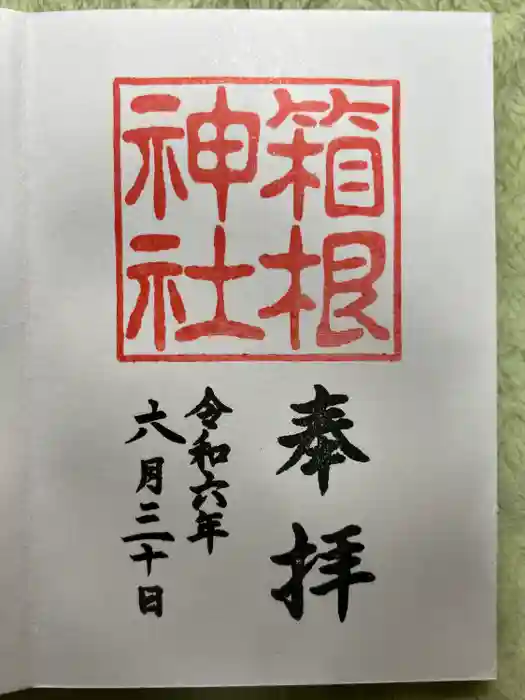 箱根
神社
奉拝
令和六年
六月三十日